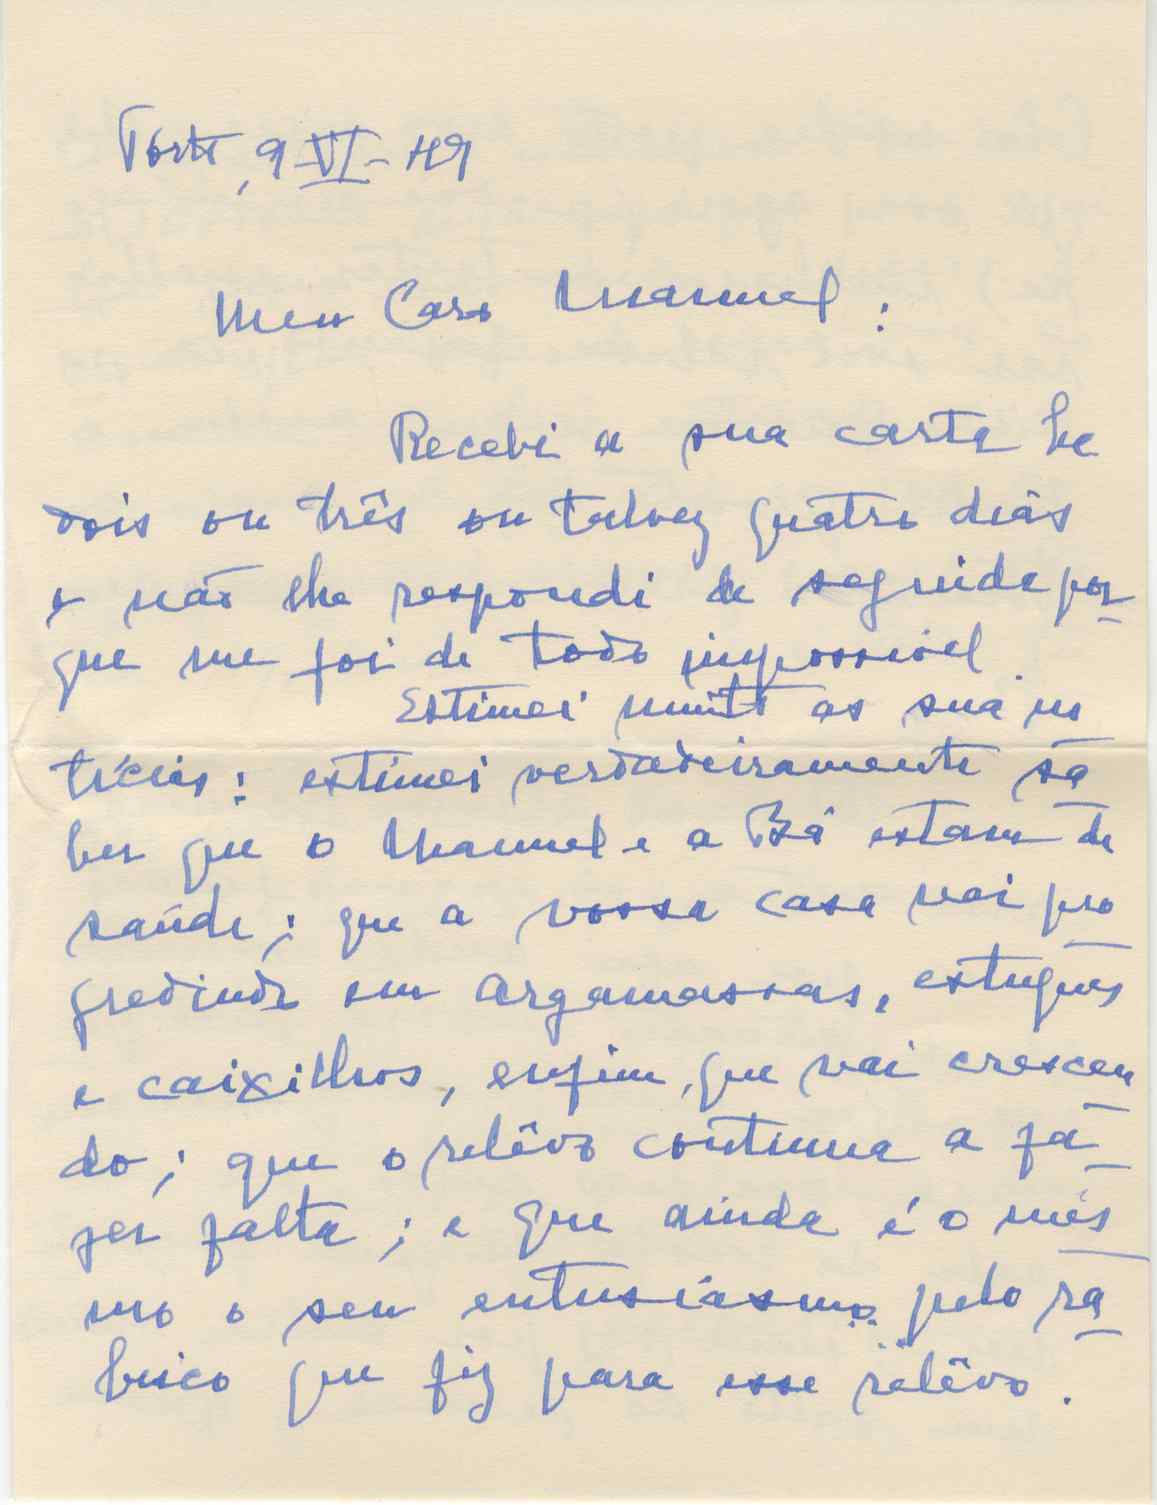 Porto, 9-VI-49
Meu Caro Manuel:
Recebi a sua carta há
dois ou três ou talvez quatro dias
e não lhe respondi de seguida por-
que me foi de todo impossível.
Estimei muito as sua no
tícias: estimei verdadeiramente sa
ber que o Manuel e a Bá estam de
saúde; que a vossa casa vai pro
gredindo em argamassas, estuques
e caixilhos, enfim, que vai crescen
do; que o relêvo continua a fa
zer falta; e que ainda é o mes
mo o seu entusiasmo pelo ra
bisco que fiz para esse relêvo.